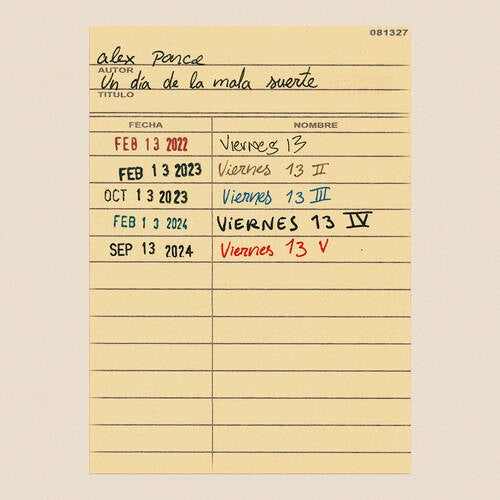 081327
alex ponce
AUTOR
Un día de la mala suerte
TITULO
FECHA NOMBRE
FEB 13 2022 Viernes 13
FEB 13 2023 Viernes 13 II
OCT 13 2023 Viernes 13 III
FEB 13 2024 VIERNES 13 IV
SEP 13 2024 Viernes 13 V